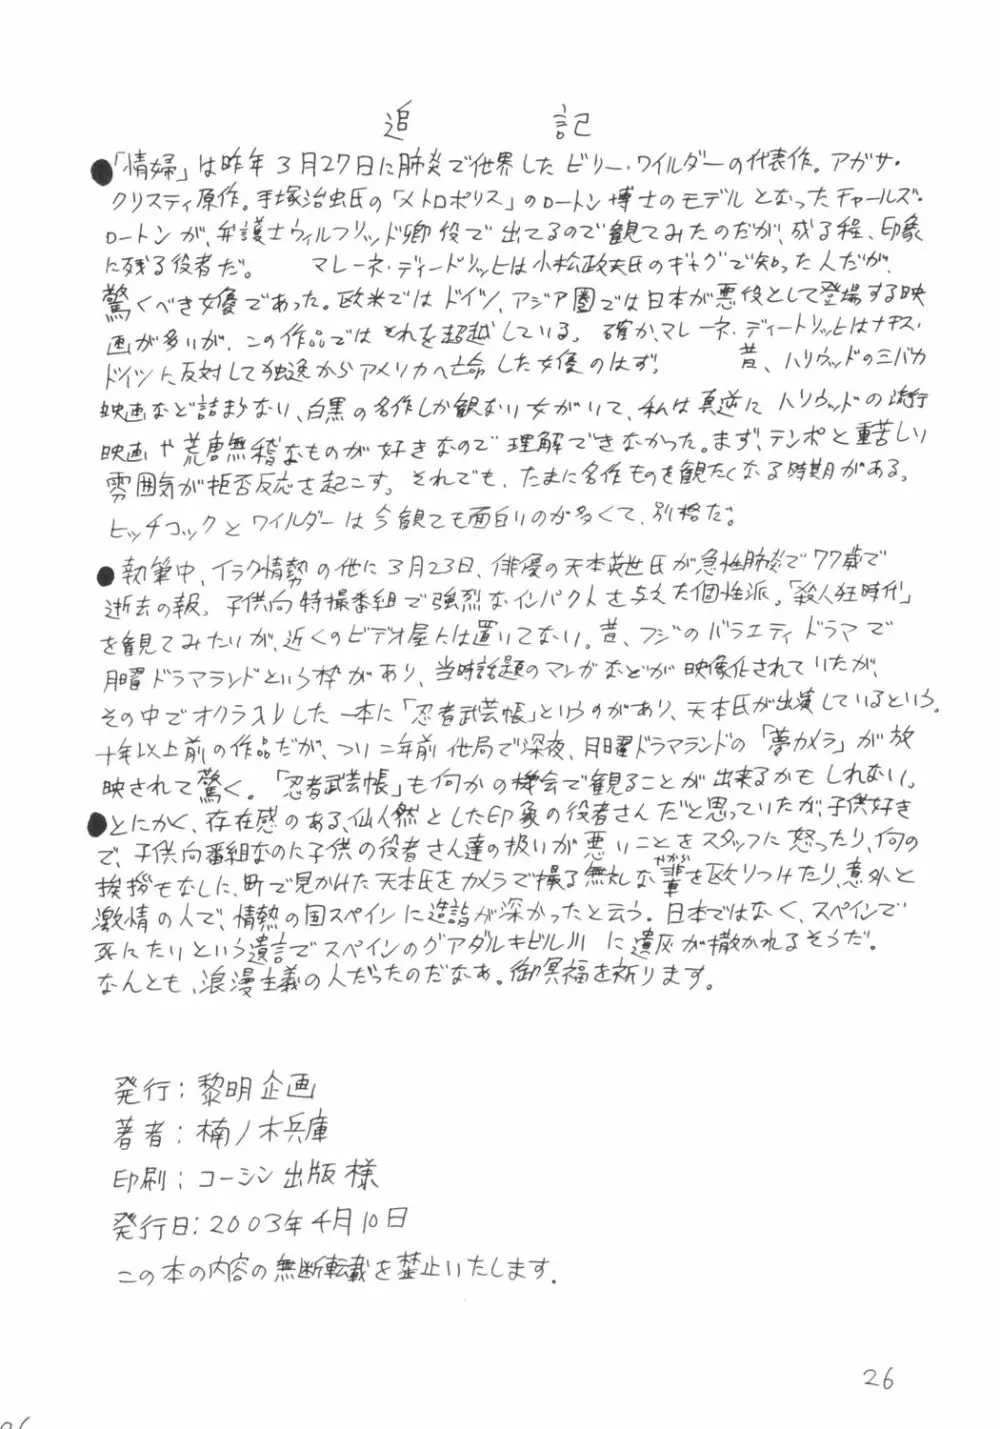 追記
●「情婦」は昨年3月27日に肺炎で他界したビリー・ワイルダーの代表作。アガサ・
クリスティ原作。手塚治虫氏の「メトロポリス」のロートン博士のモデルとなったチャールズ・
ロートンが、弁護士ウィルフリッド卿役で出てるので観てみたのだが、成る程、印象
に残る役者だ。 マレーネ・ディードリッヒは小松政夫氏のギャグで知った人だが、
驚くべき女優であった。欧米ではドイツ、アジア圏では日本が悪役として登場する映
画が多いが、この作品ではそれを超越している。 確か、マレーネ・ディートリッヒはナチス・
ドイツに反対して独逸からアメリカへ亡命した女優のはず。 昔、ハリウッドのミバカ
映画など詰まらない、白黒の名作しか観ない女がいて、私は真逆にハリウッドの流行
映画や荒唐無稽なものが好きなので理解できなかった。まず、テンポと重苦しい
雰囲気が拒否反応を起こす。それでも、たまに名作ものを観たくなる時期がある。
ヒッチコックとワイルダーは今観ても面白いのが多くて、別格だ。
●執筆中、イラク情勢の他に3月23日、俳優の天本英世氏が急性肺炎で77歳で
逝去の報。子供向特撮番組で強烈なインパクトを与えた個性派。「殺人狂時代」
を観てみたいが、近くのビデオ屋には置いてない。昔、フジのバラエティドラマで
月曜ドラマランドという枠があり、当時話題のマンガなどが映像化されていたが、
その中でオクラ入りした一本に「忍者武芸帳」というのがあり、天本氏が出演しているという。
十年以上前の作品だが、つい二年前他局で深夜、月曜ドラマランドの「夢カメラ」が放
映されて驚く。「忍者武芸帳」も何かの機会で観ることが出来るかもしれない。
●とにかく、存在感のある、仙人然とした印象の役者さんだと思っていたが、子供好き
で、子供向番組なのに子供の役者さん達の扱いが悪いことをスタッフに怒ったり、何の
挨拶もなしに、町で見かけた天本氏をカメラで撮る無礼な輩を殴りつけたり、意外と
激情の人で、情熱の国スペインに造詣が深かったと云う。日本ではなく、スペインで
死にたいという遺言でスペインのグアダルキビル川に遺灰が撒かれるそうだ。
なんとも、浪漫主義の人だったのだなぁ。御冥福を祈ります。
発行：黎明企画
著者：楠ノ木兵庫
印刷：コーシン出版様
発行日：2003年4月10日
この本の内容の無断転載を禁止いたします.
26